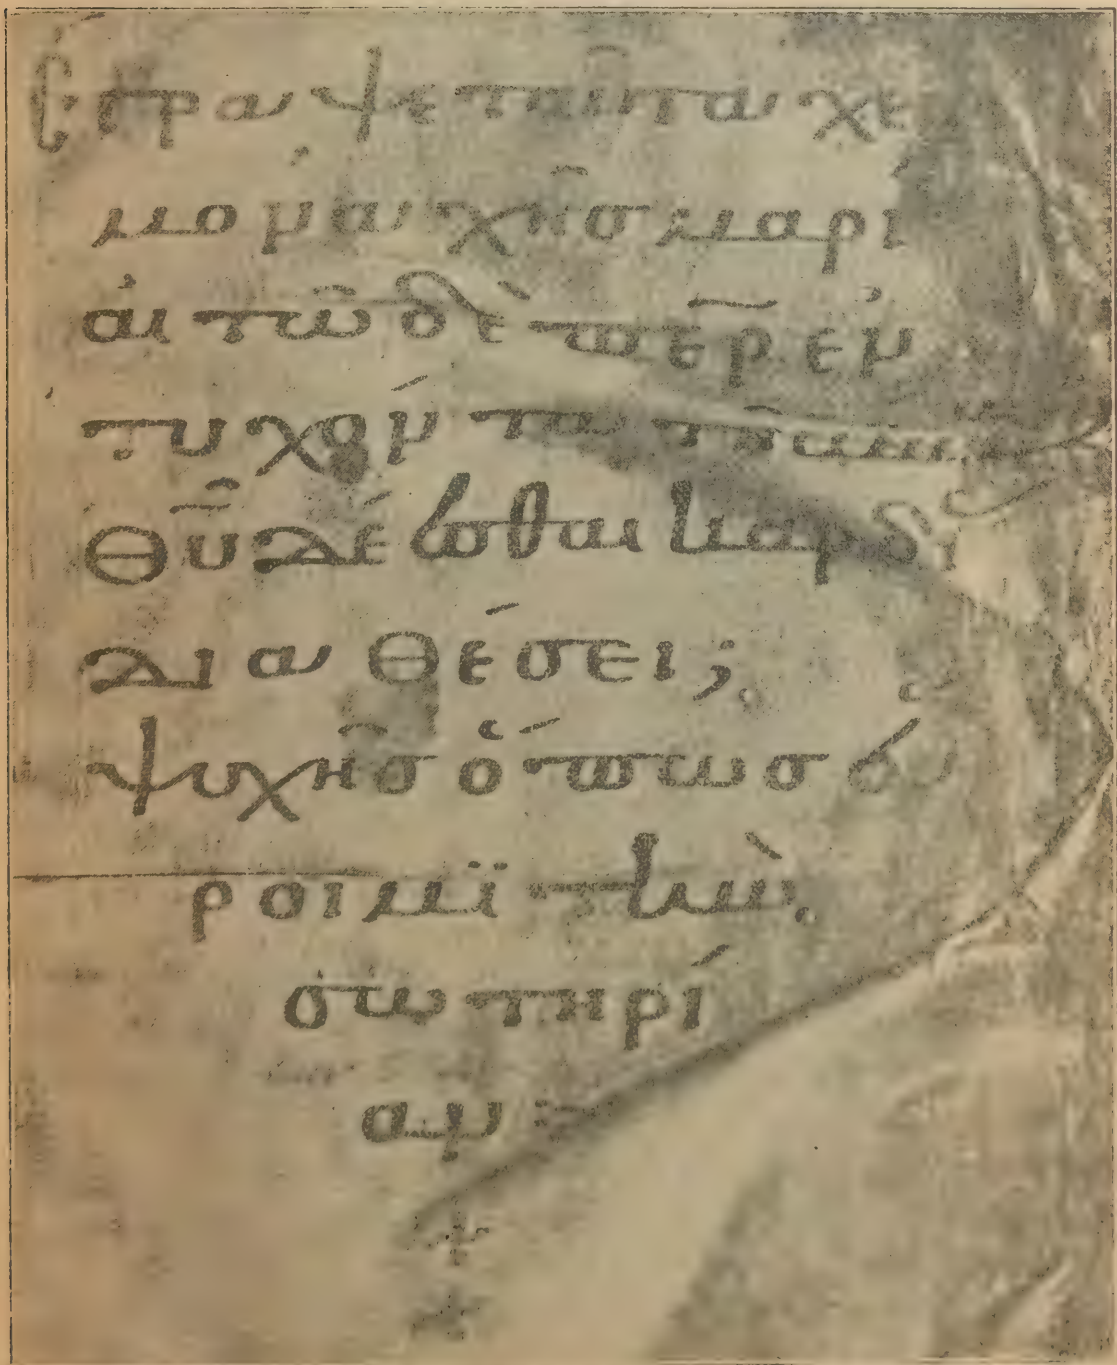 ἔγραψε ταῦτα χε
μοναχῆς μαρί
αι τῶ δὲ πε̅ρ ἐν
τυχόντα
θῦ δέεσθαι καρδι
διαθέσει;
ψυχῆς ὅπως εὕ
ροιμϊ τὴν.
σωτηρί
αν
+
+